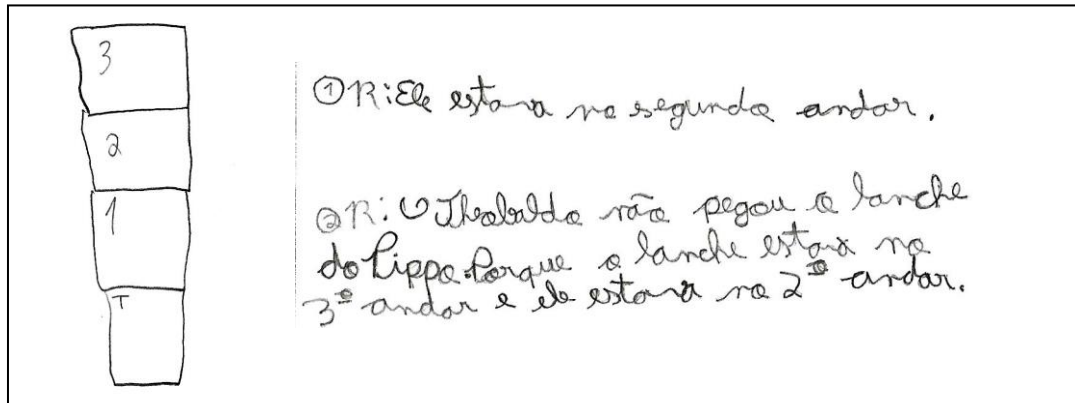 3
2
1
T
① R: Ele estava no segundo andar.
② R: O Theobaldo não pegou o lanche
do Pippo. Porque o lanche estava no
3º andar e ele estava no 2º andar.